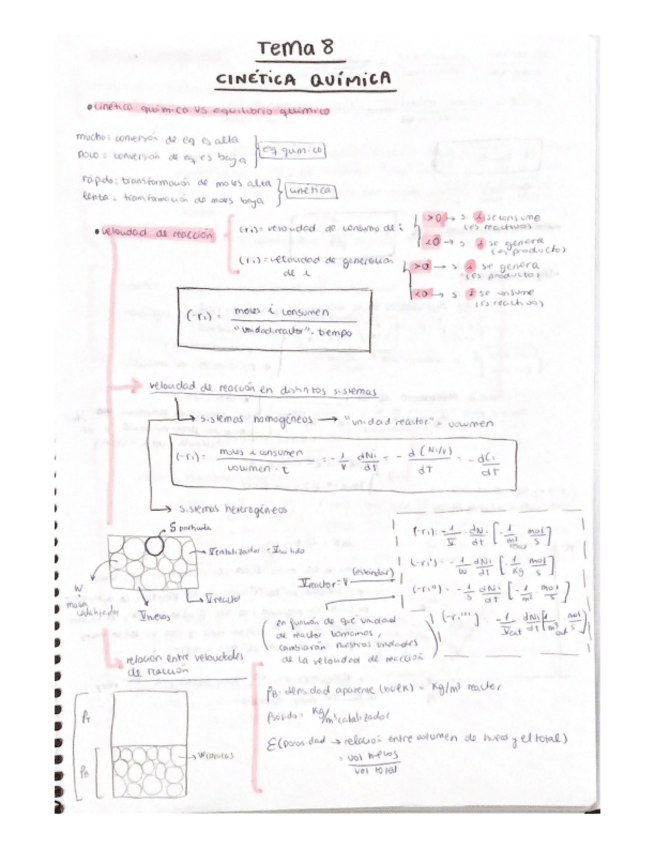 Tema 8
CINÉTICA QUÍMICA
•cinética química vs equilibrio químico
mucho: conversión de eq es alta
poco = conversión de eq. es baja
eq químico
rápido: transformación de moles alta
lenta: transformación de moles baja
cinética
•velocidad de reacción
(-ri)= velocidad de consumo de i
>0 → si i se consume
(es reactivos)
<0 → si i se genera
(es productos)
(ri)= velocidad de generación
de i
>0 → si i se genera
(es productos)
<0 → si i se consume
(es reactivos)
(-ri) = moles i consumen / "unidad reactor". tiempo
velocidad de reacción en distintos sistemas
sistemas homogéneos → "unidad reactor" = volumen
(-ri) = moles i consumen / volumen · t = - 1/V dNi/dt = - d(Ni/V)/dt = - dCi/dt
sistemas heterogéneos
S partícula
Vcatalizador = Vsólido
W
masa
catalizador
Vhuecos
Vreactor
Vreactor: V (estándar)
(en función de que unidad
de reactor tomamos,
cambiarán nuestras unidades
de la velocidad de reacción)
(-ri) = - 1/V dNi/dt
(-ri') = - 1/W dNi/dt [1/kg mol/s]
(-ri'') = - 1/S dNi/dt
(-ri''') - 1/Vcat dNi/dt
relación entre velocidades
de reacción
ρB: densidad aparente (bulk) = kg/m³ reactor
ρsólido: kg/m³ catalizador
ε (porosidad → relación entre volumen de huecos y el total)
= vol huecos / vol total
ρB